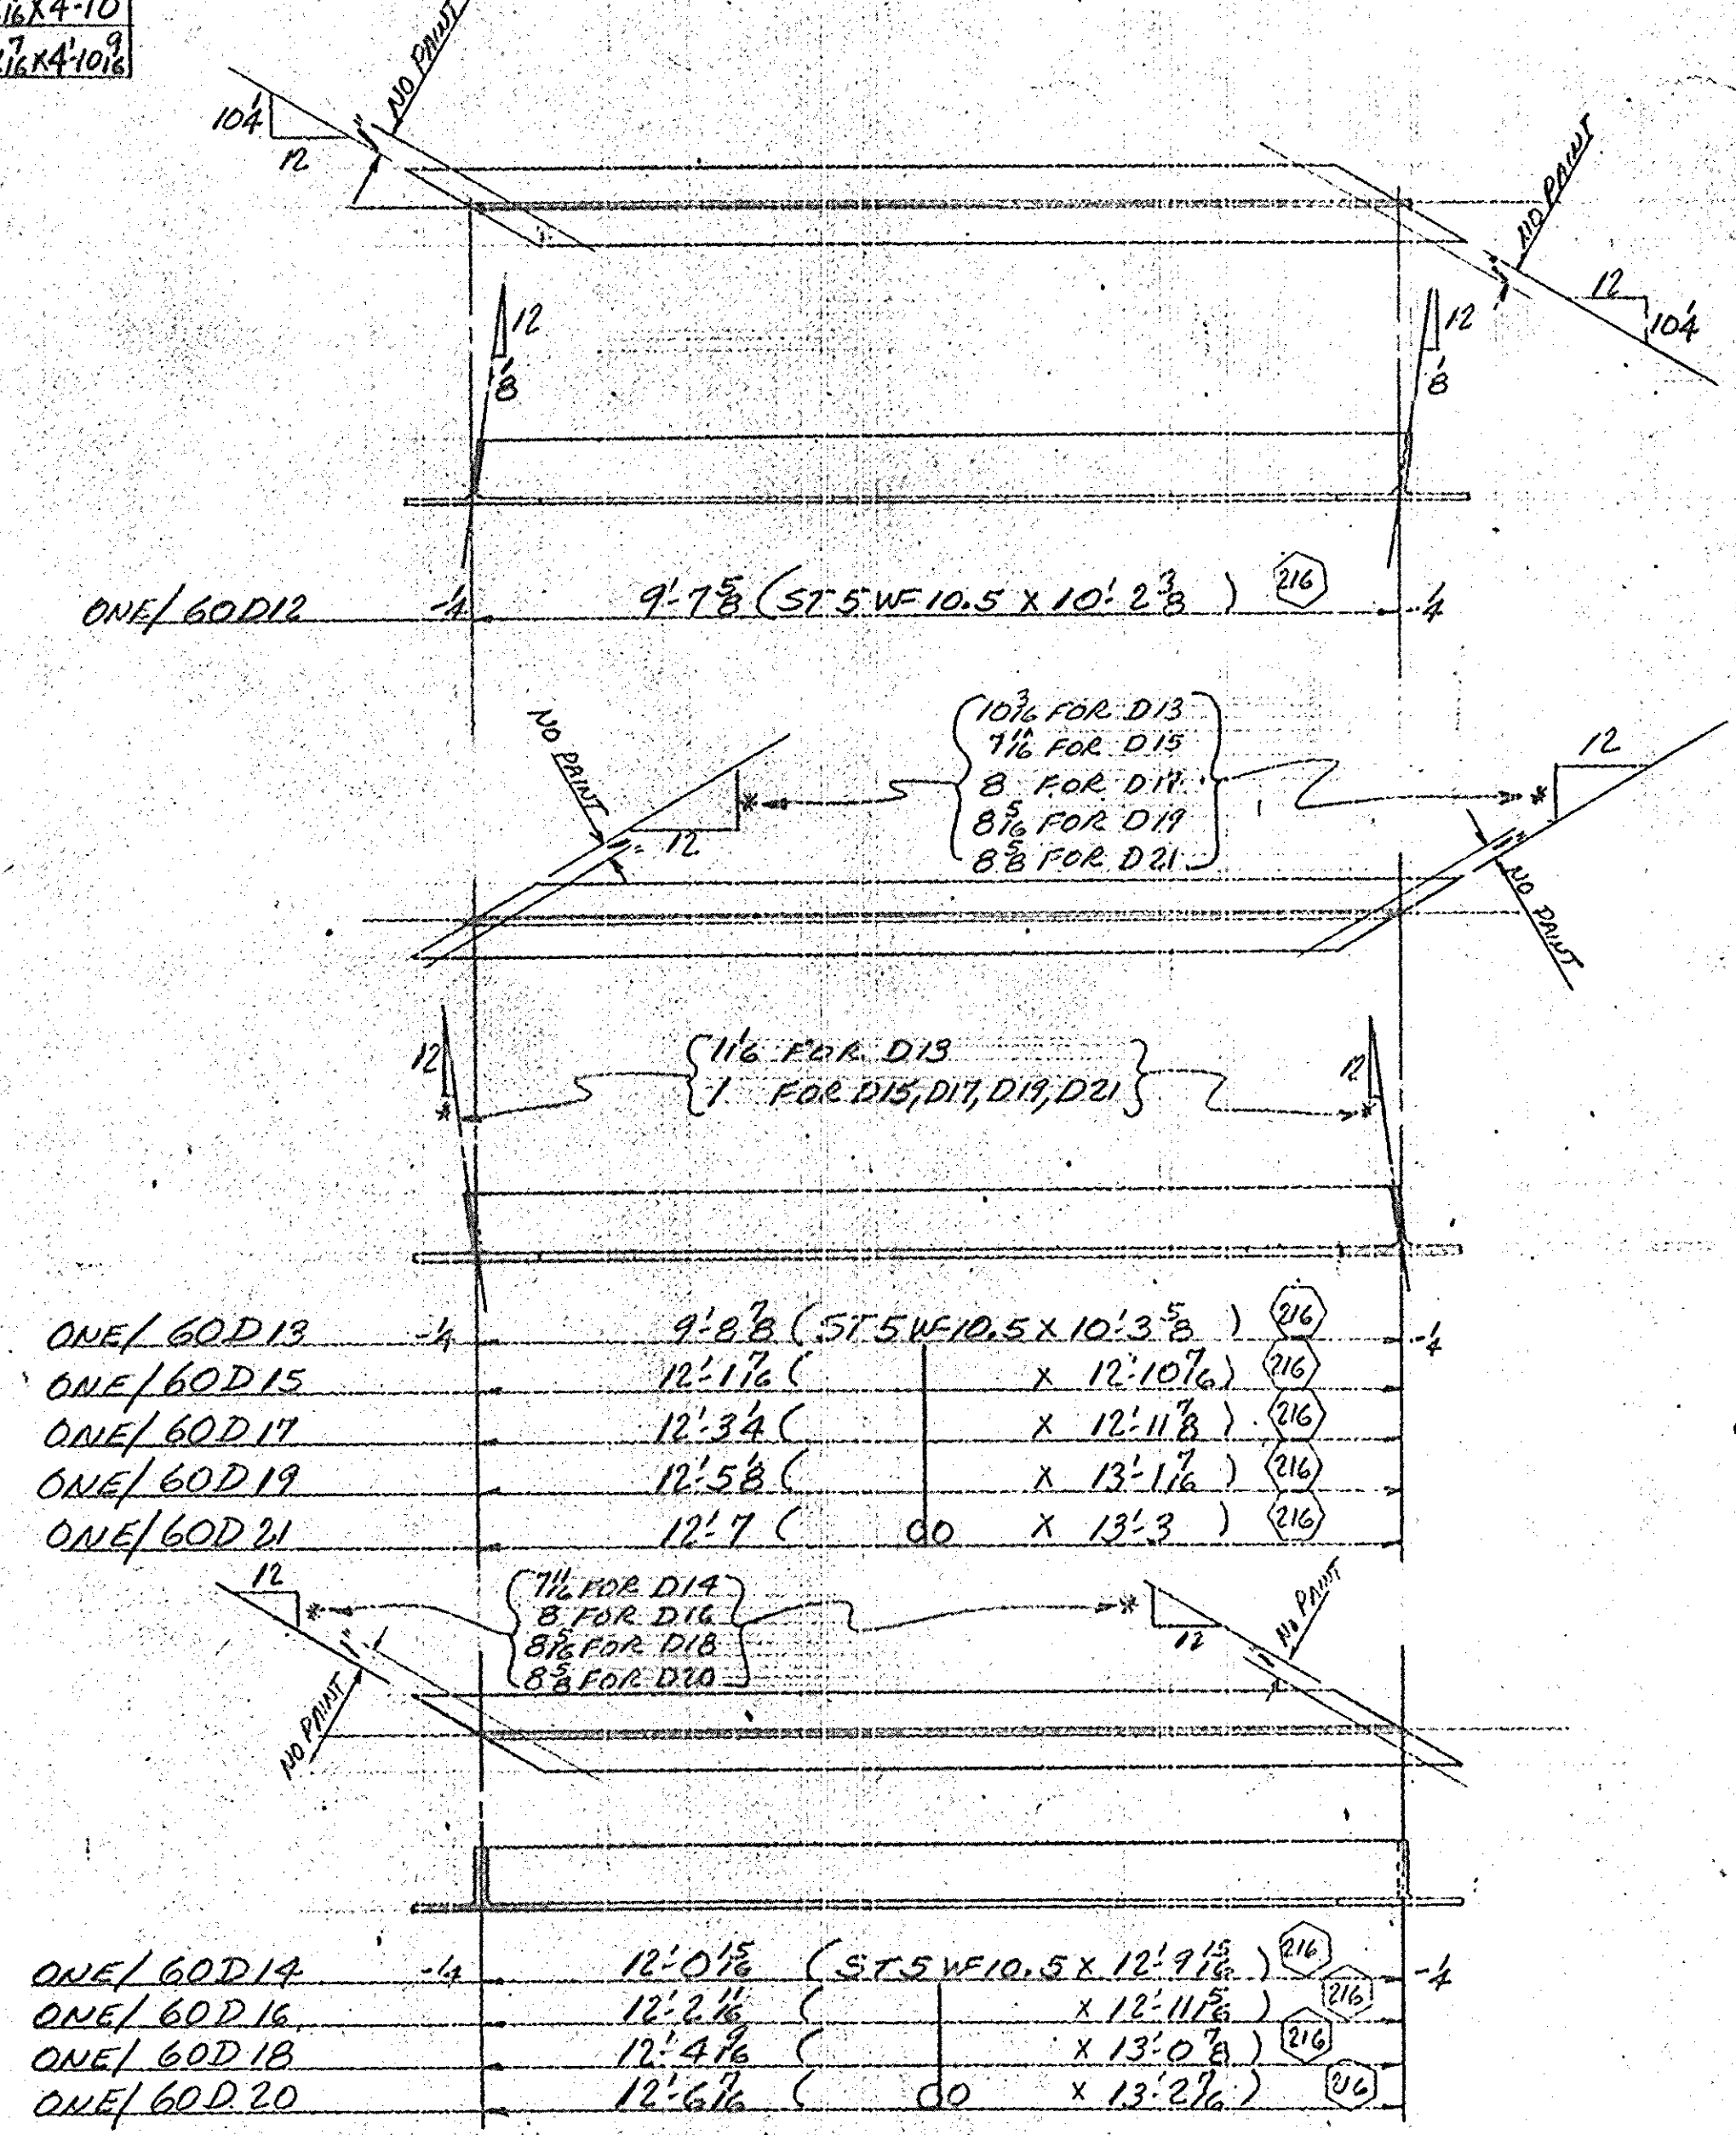 16 X 4-10
7/16 X 4'-10 9/16
NO PAINT
10 1/4
12
1"
NO PAINT
12
10 1/4
1"
12
1/8
12
1/8
ONE/ 60D12 -1/4 9'-7 5/8 (ST 5 WF 10.5 X 10'-2 3/8 ) 216 -1/4
NO PAINT
* 12
1"
10 3/16 FOR D13
7 11/16 FOR D15
8 FOR D17
8 5/16 FOR D19
8 5/8 FOR D21
12
*
1"
NO PAINT
12
*
1 1/16 FOR D13
1 FOR D15, D17, D19, D21
12
*
ONE/ 60D13 -1/4 9'-8 7/8 (ST 5 WF 10.5 X 10'-3 5/8 ) 216 -1/4
ONE/ 60D15 12'-1 7/16 ( X 12'-10 7/16 ) 216
ONE/ 60D17 12'-3 1/4 ( X 12'-11 7/8 ) 216
ONE/ 60D19 12'-5 1/8 ( X 13'-1 7/16 ) 216
ONE/ 60D21 12'-7 ( DO X 13'-3 ) 216
12
*
1"
NO PAINT
7 11/16 FOR D14
8 FOR D16
8 5/16 FOR D18
8 5/8 FOR D20
*
12
1"
NO PAINT
ONE/ 60D14 -1/4 12'-0 15/16 (ST 5 WF 10.5 X 12'-9 15/16 ) 216 -1/4
ONE/ 60D16 12'-2 11/16 ( X 12'-11 5/16 ) 216
ONE/ 60D18 12'-4 9/16 ( X 13'-0 7/8 ) 216
ONE/ 60D20 12'-6 7/16 ( DO X 13'-2 7/16 ) 216